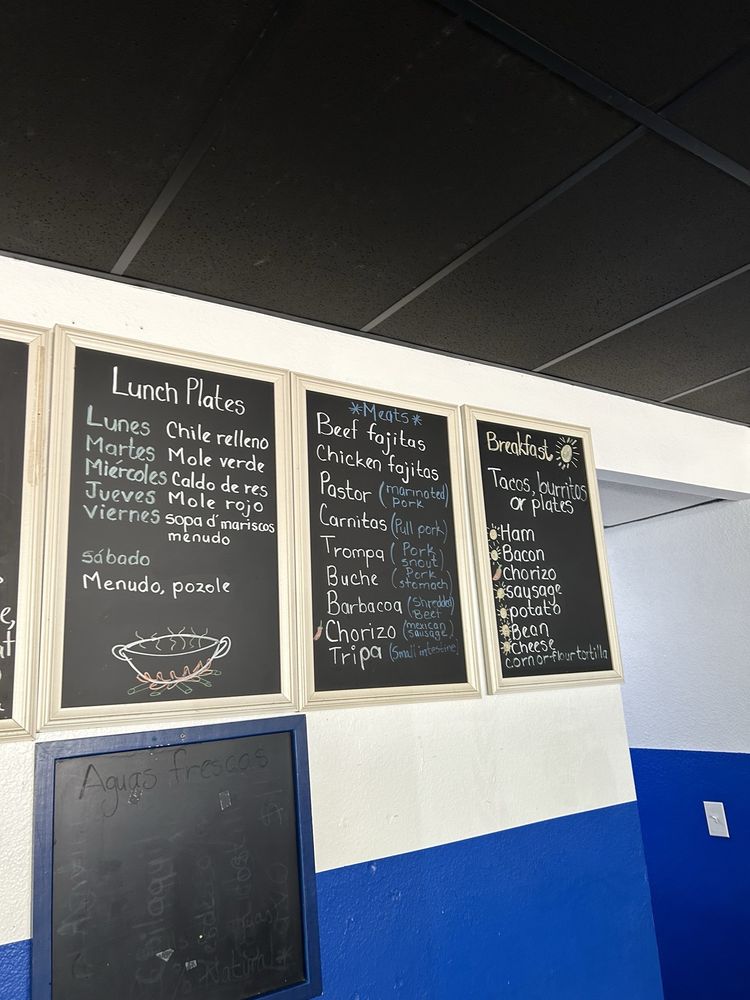 Lunch Plates
Lunes Chile relleno
Martes Mole verde
Miércoles Caldo de res
Jueves Mole rojo
Viernes sopa d' mariscos
menudo
sábado
Menudo, pozole
*Meats*
Beef fajitas
Chicken fajitas
Pastor (marinated pork)
Carnitas (Pull pork)
Trompa (Pork snout)
Buche (Pork stomach)
Barbacoa (Shredded Beef)
Chorizo (mexican sausage)
Tripa (Small intestine)
Breakfast
Tacos, burritos
or plates
Ham
Bacon
Chorizo
sausage
potato
Bean
cheese
corn or flour tortilla
Aguas frescas
Natural